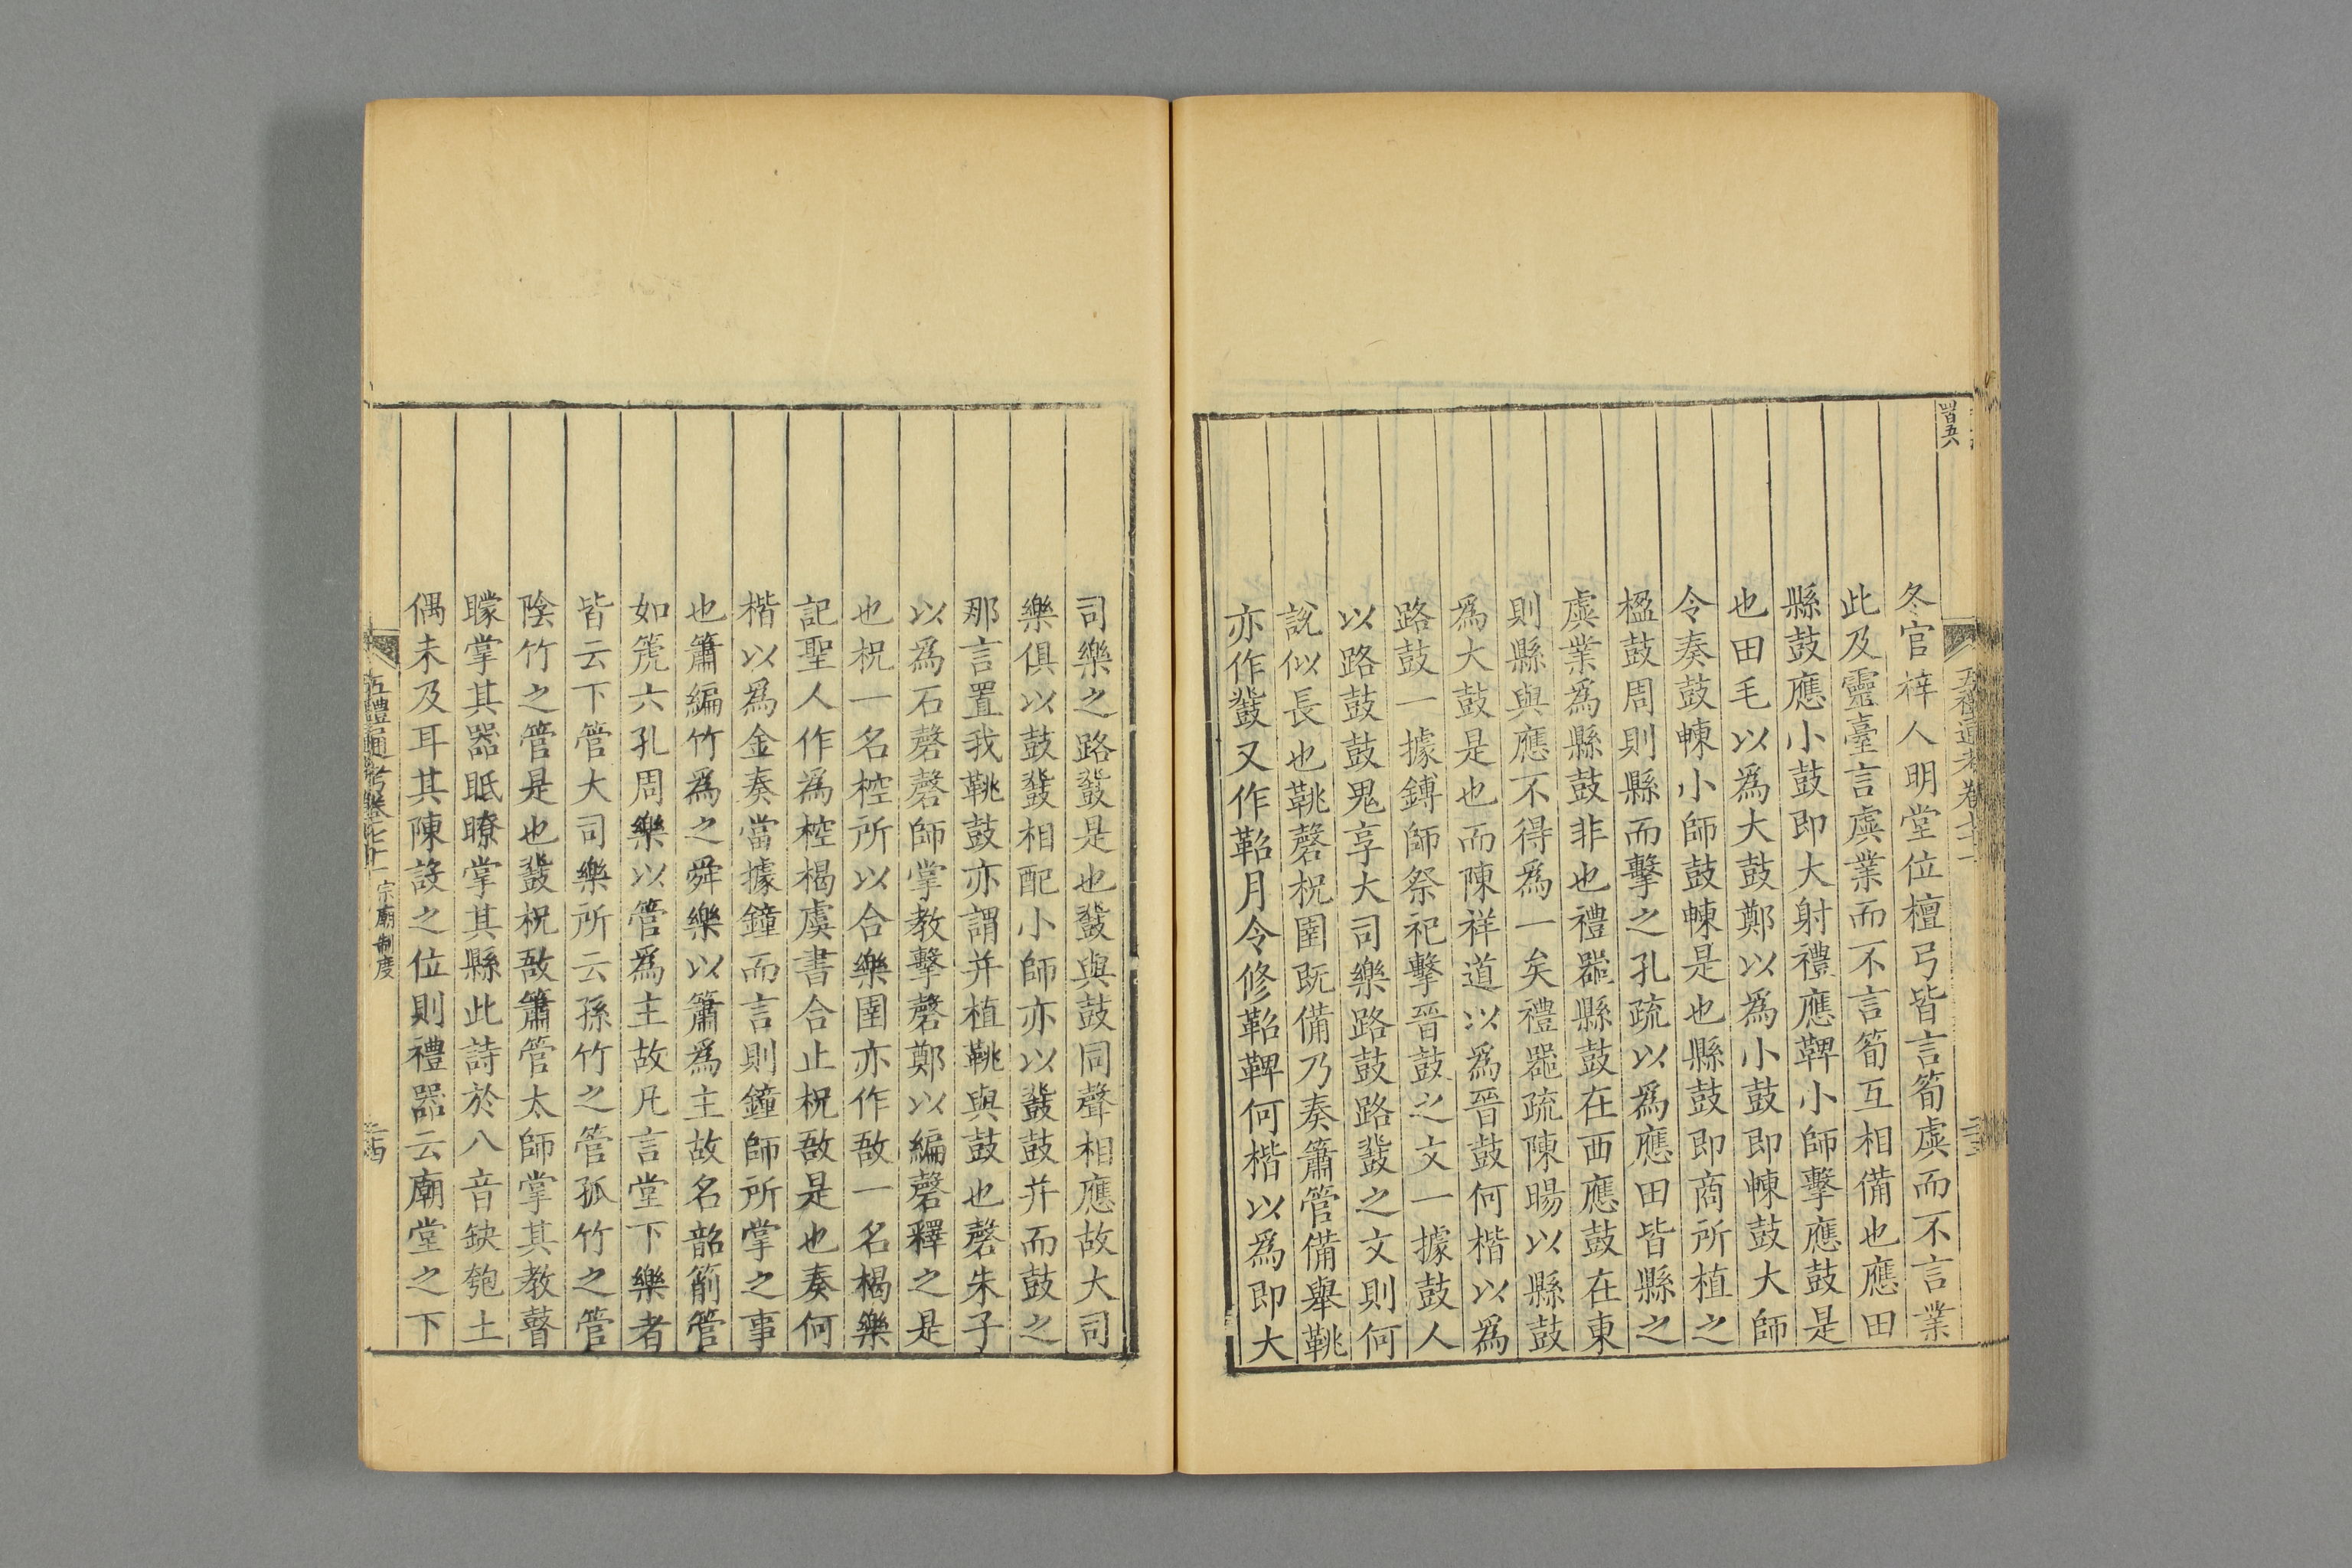 冬官梓人明堂位檀弓皆言筍虡而不言業
此及靈臺言虡業而不言筍互相備也應田
縣鼓應小鼓即大射禮應鞞小師擊應鼓是
也田毛以爲大鼓鄭以爲小鼓即㯥鼓大師
令奏鼓㯥小師鼓㯥是也縣鼓即商所植之
楹鼓周則縣而擊之孔疏以爲應田皆縣之
虡業爲縣鼓非也禮器縣鼓在西應鼓在東
則縣與應不得爲一矣禮器疏陳暘以縣鼓
爲大鼓是也而陳祥道以爲晉鼓何楷以爲
路鼓一據鎛師祭祀擊晉鼓之文一據鼓人
以路鼓鼓鬼享大司樂路鼓路鼗之文則何
說似長也鞉磬柷圉既備乃奏簫管備舉鞉
亦作鼗又作鞀月令修鞀鞞何楷以爲即大
司樂之路鼗是也鼗與鼓同聲相應故大司
樂俱以鼓鼗相配小師亦以鼗鼓并而鼓之
那言置我鞉鼓亦謂并植鞉與鼓也磬朱子
以爲石磬磬師掌教擊磬鄭以編磬釋之是
也柷一名椌所以合樂圉亦作敔一名楬樂
記聖人作爲椌楬虞書合止柷敔是也奏何
楷以爲金奏當據鐘而言則鐘師所掌之事
也簫編竹爲之舜樂以簫爲主故名韶箾管
如箎六孔周樂以管爲主故凡言堂下樂者
皆云下管大司樂所云孫竹之管孤竹之管
陰竹之管是也鼗柷敔簫管太師掌其教瞽
矇掌其器眡瞭掌其縣此詩於八音缺匏土
偶未及耳其陳設之位則禮器云廟堂之下
五禮通考卷七十一 宗廟制度